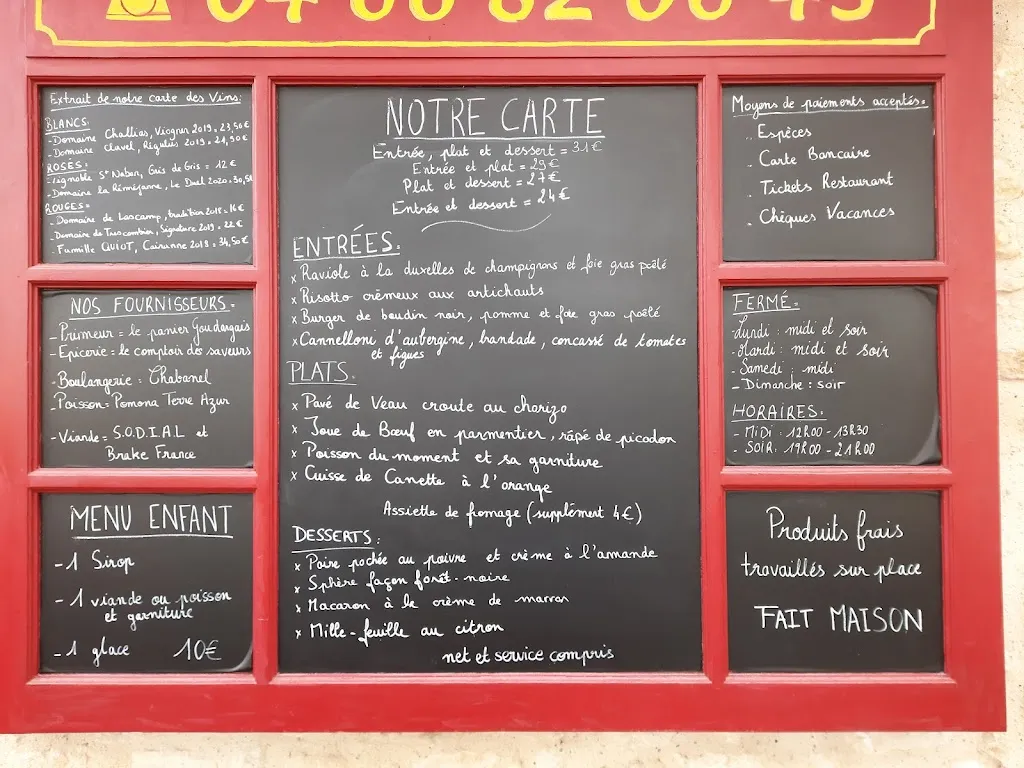 Extrait de notre carte des Vins:
BLANCS:
- Domaine Challias, Viognier 2019 = 23,50€
- Domaine Clavel, Régulus 2019 = 21,50€
ROSÉS:
- Vignoble St Nabor, Gris de Gris = 12€
- Domaine la Réméjanne, Le Duel 2020 = 30,5
ROUGES=
- Domaine de Lascamp, tradition 2018 = 16€
- Domaine de Trescombier, Signature 2019 = 22€
- Famille QUIOT, Cairanne 2018 = 34,50€
NOS FOURNISSEURS=
- Primeur = le panier Goudargais
- Epicerie = le comptoir des saveurs
- Boulangerie : Chabanel
- Poisson = Pomona Terre Azur
- Viande = S.O.D.I.A.L et
Brake France
MENU ENFANT
- 1 Sirop
- 1 viande ou poisson
et garniture
- 1 glace 10€
NOTRE CARTE
Entrée, plat et dessert = 31€
Entrée et plat = 29€
Plat et dessert = 27€
Entrée et dessert = 24€
ENTRÉES:
x Raviole à la duxelles de champignons et foie gras poêlé
x Risotto crèmeux aux artichauts
x Burger de boudin noir, pomme et foie gras poêlé
x Cannelloni d'aubergine, brandade, concassé de tomates
et figues
PLATS:
x Pavé de Veau croute au chorizo
x Joue de Bœuf en parmentier, râpé de picodon
x Poisson du moment et sa garniture
x Cuisse de Canette à l'orange
Assiette de fromage (supplément 4€)
DESSERTS:
x Poire pochée au poivre et crème à l'amande
x Sphère façon forêt-noire
x Macaron à la crème de marron
x Mille-feuille au citron
net et service compris
Moyens de paiements acceptés=
- Espèces
- Carte Bancaire
- Tickets Restaurant
- Chèques Vacances
FERMÉ=
- Lundi : midi et soir
- Mardi : midi et soir
- Samedi : midi
- Dimanche : soir
HORAIRES:
- MIDI : 12h00 - 13h30
- SOIR: 19h00 - 21h00
Produits frais
travaillés sur place
FAIT MAISON